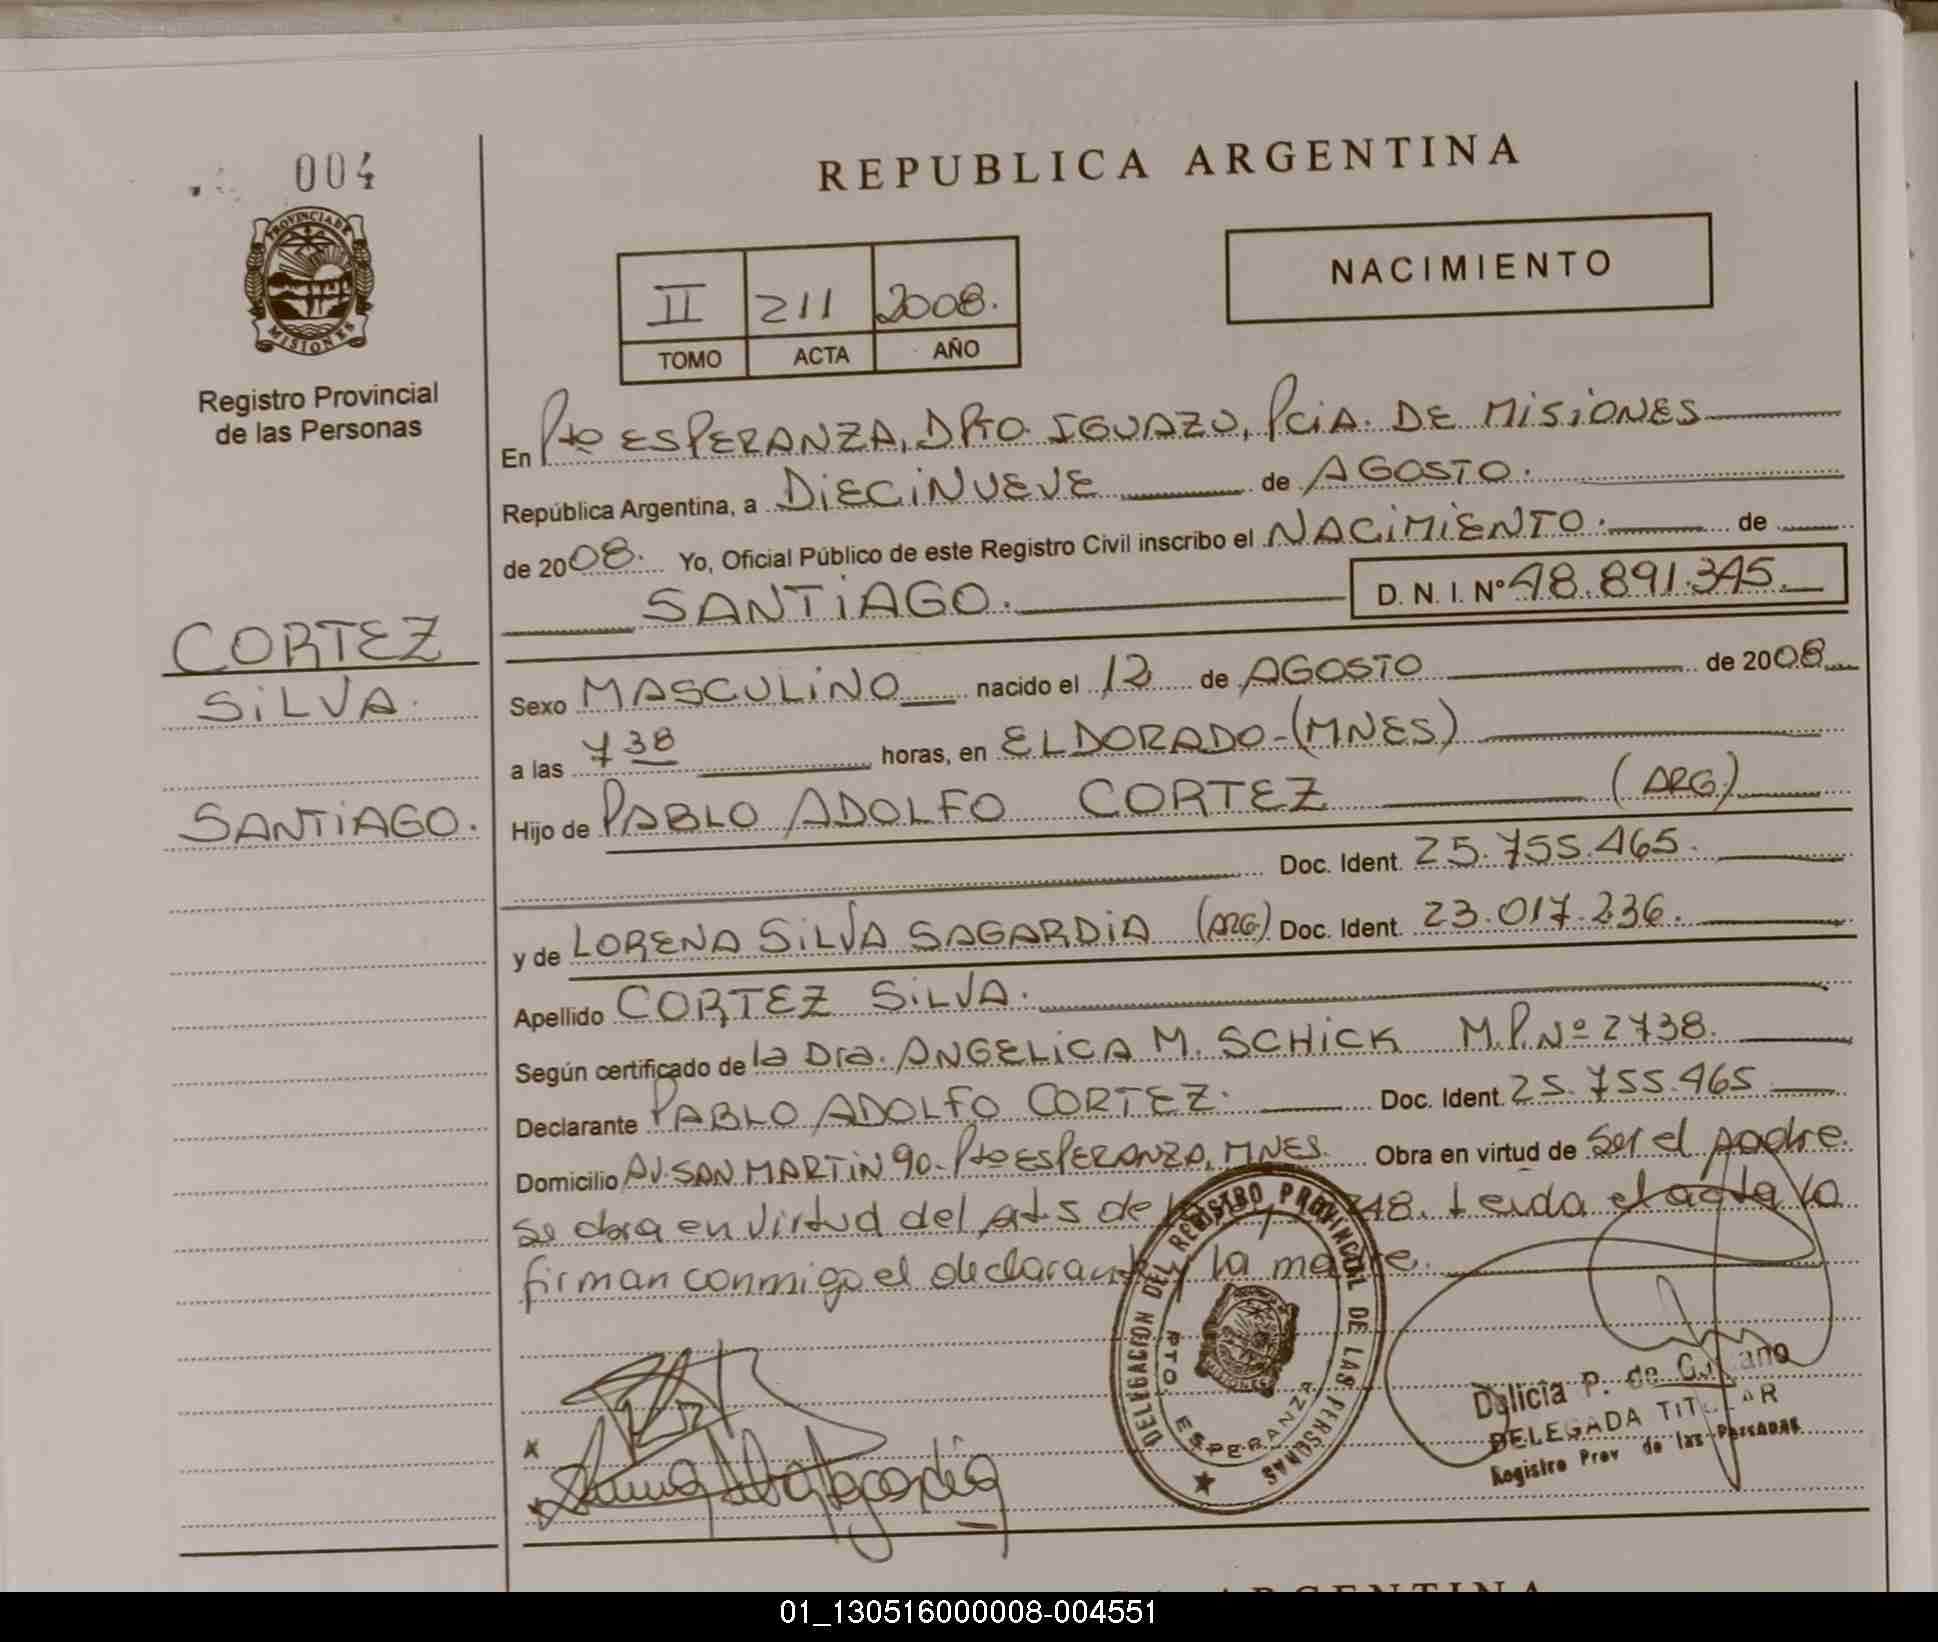 004
PROVINCIA DE
MISIONES
Registro Provincial
de las Personas
CORTEZ
SILVA.
SANTIAGO.
REPUBLICA ARGENTINA
II 211 2008.
TOMO ACTA AÑO
NACIMIENTO
En Pto ESPERANZA, DPTO. IGUAZU, PCiA. DE MISIONES
República Argentina, a DIECINUEVE de AGOSTO.
de 2008. Yo, Oficial Público de este Registro Civil inscribo el NACIMIENTO. de
SANTIAGO. D. N. I. Nº 48.891.345.
Sexo MASCULINO nacido el 12 de AGOSTO de 2008
a las 7 38 horas, en ELDORADO-(MNES)
Hijo de PABLO ADOLFO CORTEZ (ARG.)
Doc. Ident. 25.755.465.
y de LORENA SILVA SAGARDIA (ARG) Doc. Ident. 23.017.236.
Apellido CORTEZ SILVA.
Según certificado de la Dra. ANGELICA M. SCHICK M.P. Nº 2738.
Declarante PABLO ADOLFO CORTEZ. Doc. Ident. 25.755.465
Domicilio AV. SAN MARTIN 90- Pto ESPERANZA, MNES. Obra en virtud de ser el padre.
se obra en virtud del art 5 de 248. Leida el acta la
firman conmigo el declarante y la madre.
DELEGACION DEL REGISTRO PROVINCIAL DE LAS PERSONAS
PTO. ESPERANZA
MISIONES
Delicia P. de
DELEGADA TITULAR
Registro Prov de las Personas
x
ARGENTINA
01_130516000008-004551